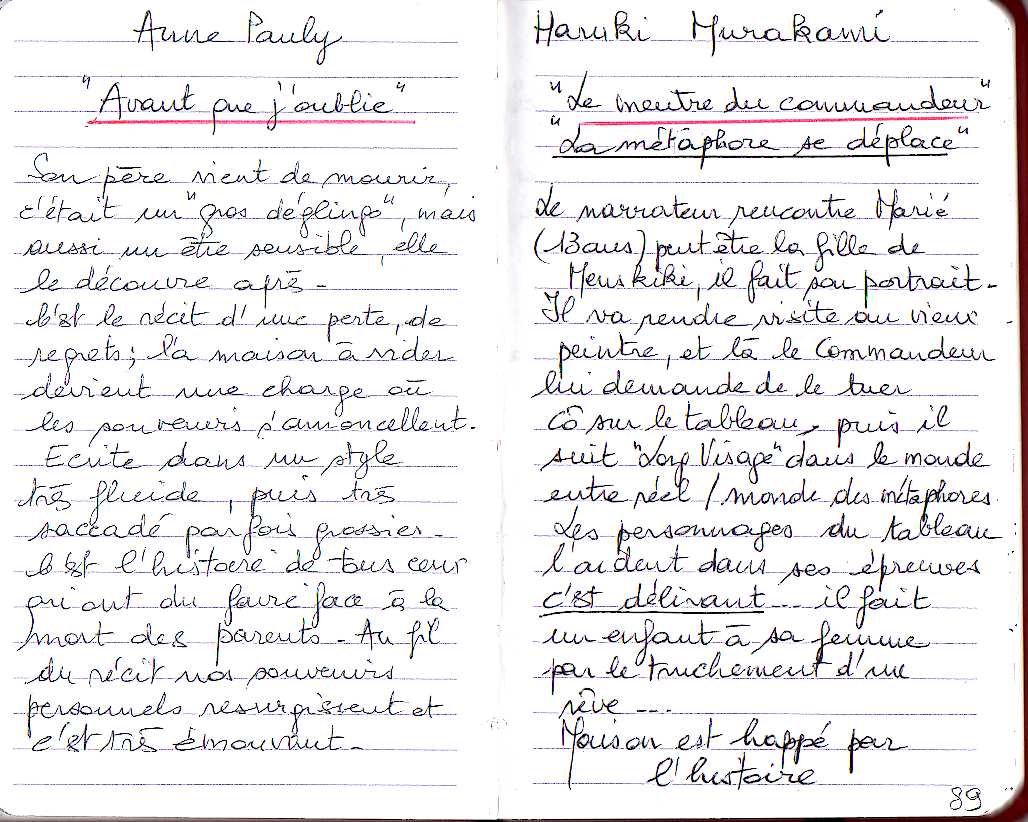 Anne Pauly
"Avant que j'oublie"
Son père vient de mourir,
c'était un "gros déglingo", mais
aussi un être sensible, elle
le découvre après -
C'est le récit d'une perte, de
regrets ; la maison à vider
devient une charge où
les souvenirs s'amoncellent.
Ecrite dans un style
très fluide, puis très
saccadé parfois grossier -
C'est l'histoire de tous ceux
qui ont du faire face à la
mort des parents - Au fil
du récit nos souvenirs
personnels resurgissent et
c'est très émouvant -
Haruki Murakami
"Le meutre du commandeur"
"La métaphore se déplace"
Le narrateur rencontre Marié
(13 ans) peut être la fille de
Menskiki, il fait son portrait -
Il va rendre visite au vieux
peintre, et là le Commandeur
lui demande de le tuer
cô sur le tableau, puis il
suit "Long Visage" dans le monde
entre réel / monde des métaphores.
Les personnages du tableau
l'aident dans ses épreuves
c'est délirant ... il fait
un enfant à sa femme
par le truchement d'un
rêve ...
Maison est happé par
l'histoire
89